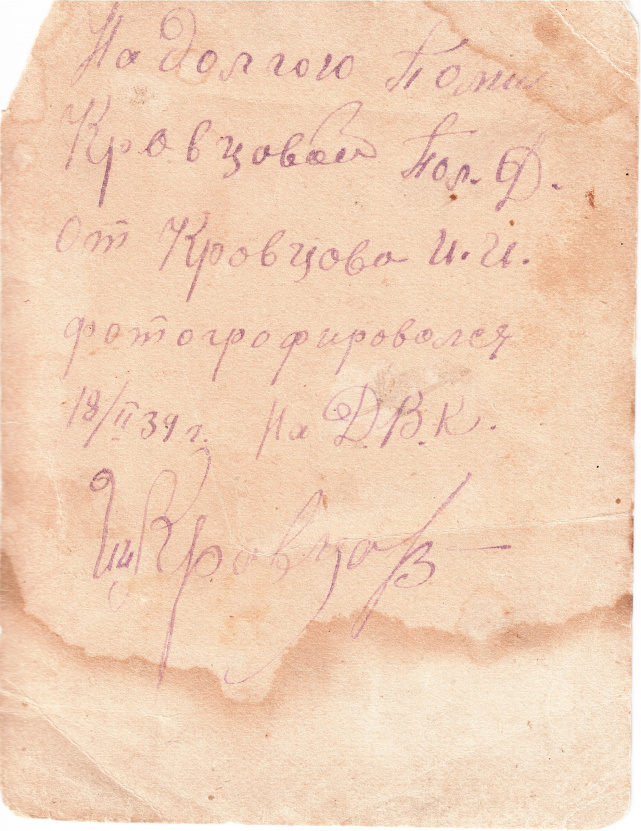 На долгою Поми
Кровцовой Пол. Д.
От Кровцова И. И.
фотогрофировался
18/II 39 г. На Д.В.К.
Кровцов